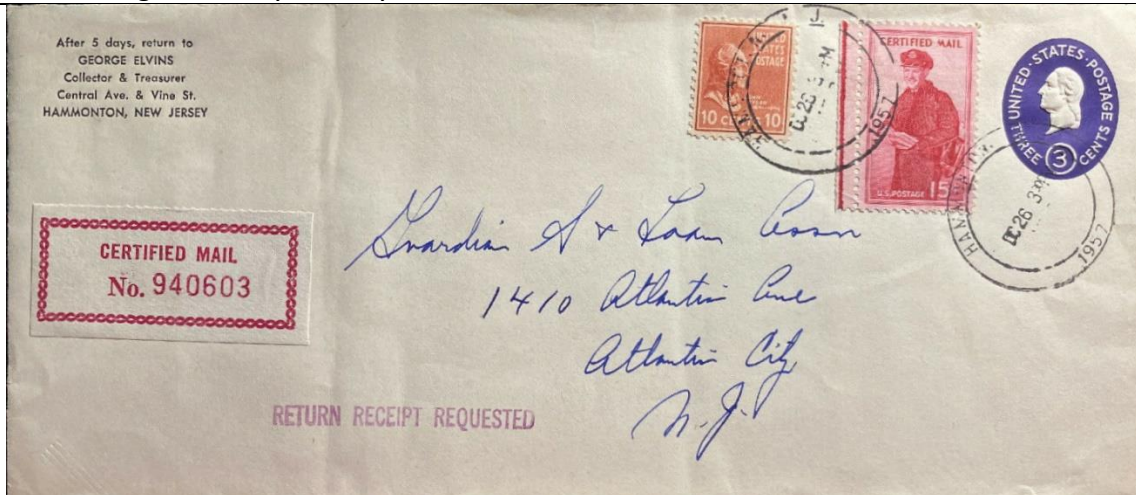 After 5 days, return to
GEORGE ELVINS
Collector & Treasurer
Central Ave. & Vine St.
HAMMONTON, NEW JERSEY
UNITED STATES POSTAGE
10 CENTS 10
CERTIFIED MAIL
U.S. POSTAGE 15¢
UNITED·STATES·POSTAGE
THREE 3 CENTS
N.J.
DC 26
1957
DC 26 3
1957
CERTIFIED MAIL
No. 940603
Guardian S & Loan Assn
1410 Atlantic Ave
Atlantic City
N.J.
RETURN RECEIPT REQUESTED